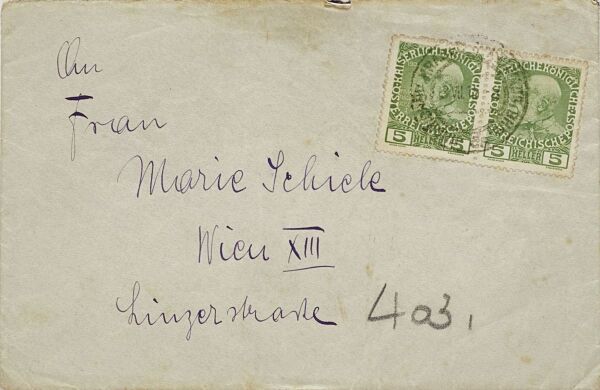 An
Frau
Marie Schiele
Wien XIII
Linzerstrasse 403.
KAISERLICHE KÖNIGLICHE ÖSTERREICHISCHE POST
5 HELLER 5
KAISERLICHE KÖNIGLICHE ÖSTERREICHISCHE POST
5 HELLER 5